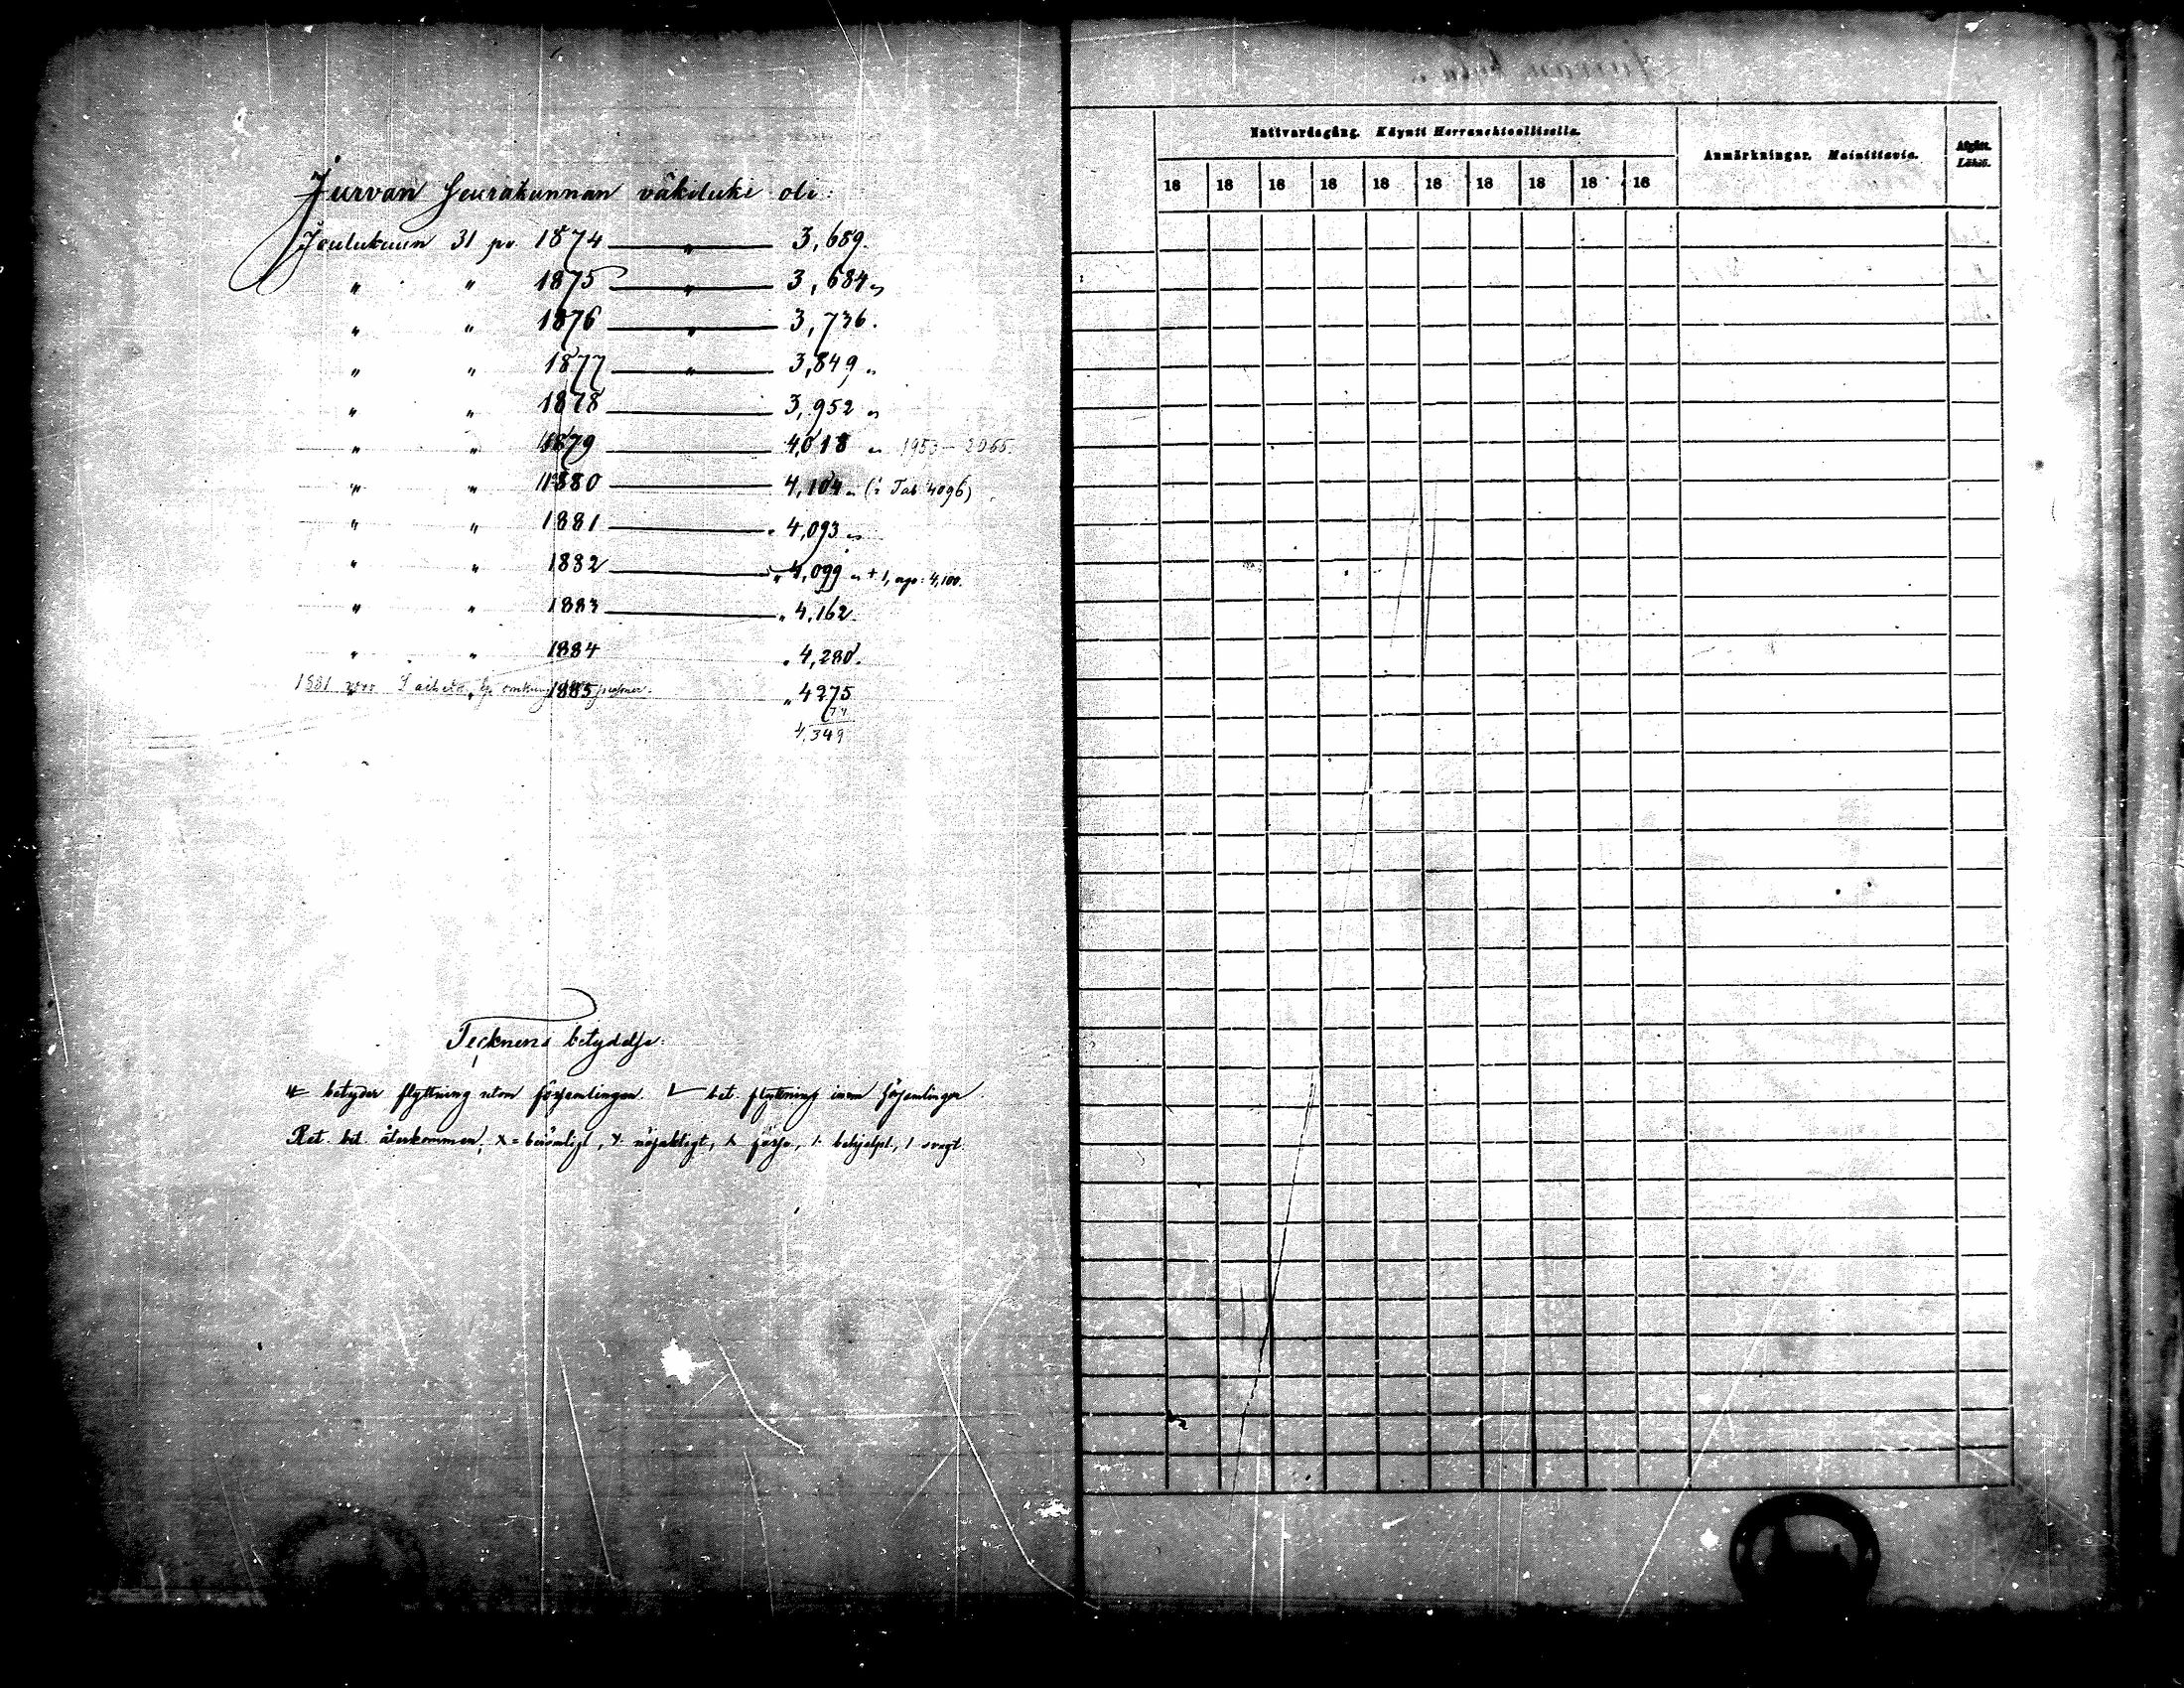 Jurvan Seurakunnan väkiluku oli:
Joulukuun 31 pv. 1874 — „ — 3,689.
„ „ 1875 — „ — 3,684 „
„ „ 1876 — „ — 3,736.
„ „ 1877 — „ — 3,849 „
„ „ 1878 — 3,952 „
„ „ 1879 — 4,018 „ 1953 – 2065.
„ „ 1880 — 4,104 „ (i Tab. 4096)
„ „ 1881 — „ 4,093 „
„ „ 1882 — „ 4,099 „ + 1, 4,100.
„ „ 1883 — „ 4,162.
„ „ 1884 „ 4,280.
1881 1885 „ 4275
74
4,349
Tecknens betydelse:
betyder flyttning utom församlingen. bet. flyttning inom församlingen.
Ret. bet. återkommen, x = berömligt, nöjaktigt, försv., behjelpl., / svagt.
Nattvardsgång. Käynti Herranehtoollisella.
Anmärkningar. Mainittavia.
Afgått.
Lähtö.
18 18 18 18 18 18 18 18 18 18